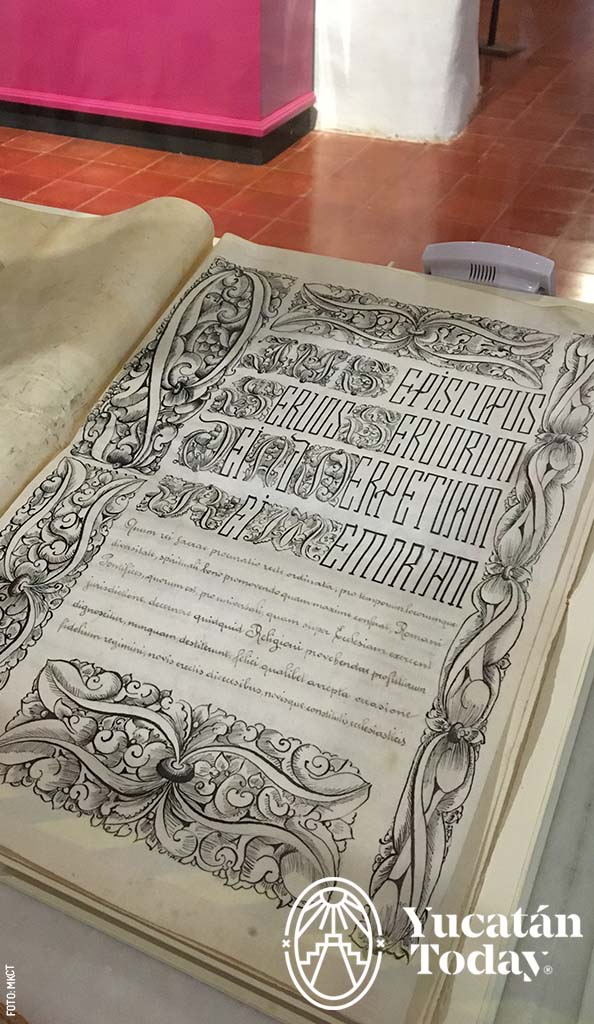 PIUS EPISCOPUS
SERVUS SERVORUM
DEI AD PERPETUAM
REI MEMORIAM
Quum rei sacrae procuratio recte ordinata, pro temporum locorumque
diversitate, spirituali bono promovendo quam maxime conferat, Romani
Pontifices, quorum est, pro universali, quam super Ecclesiam exercent
jurisdictione, decernere quidquid Religioni provehendae profuturum
dignoscitur, nunquam destiterunt, felici qualibet arrepta occasione
fidelium regimini, novis erectis dioecesibus, novisque constitutis ecclesiasticis
Yucatán
Today®
FOTO: MKCT